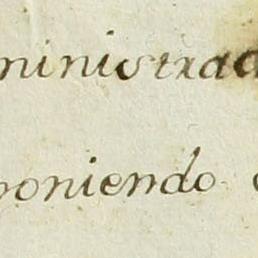 ministrad
poniendo